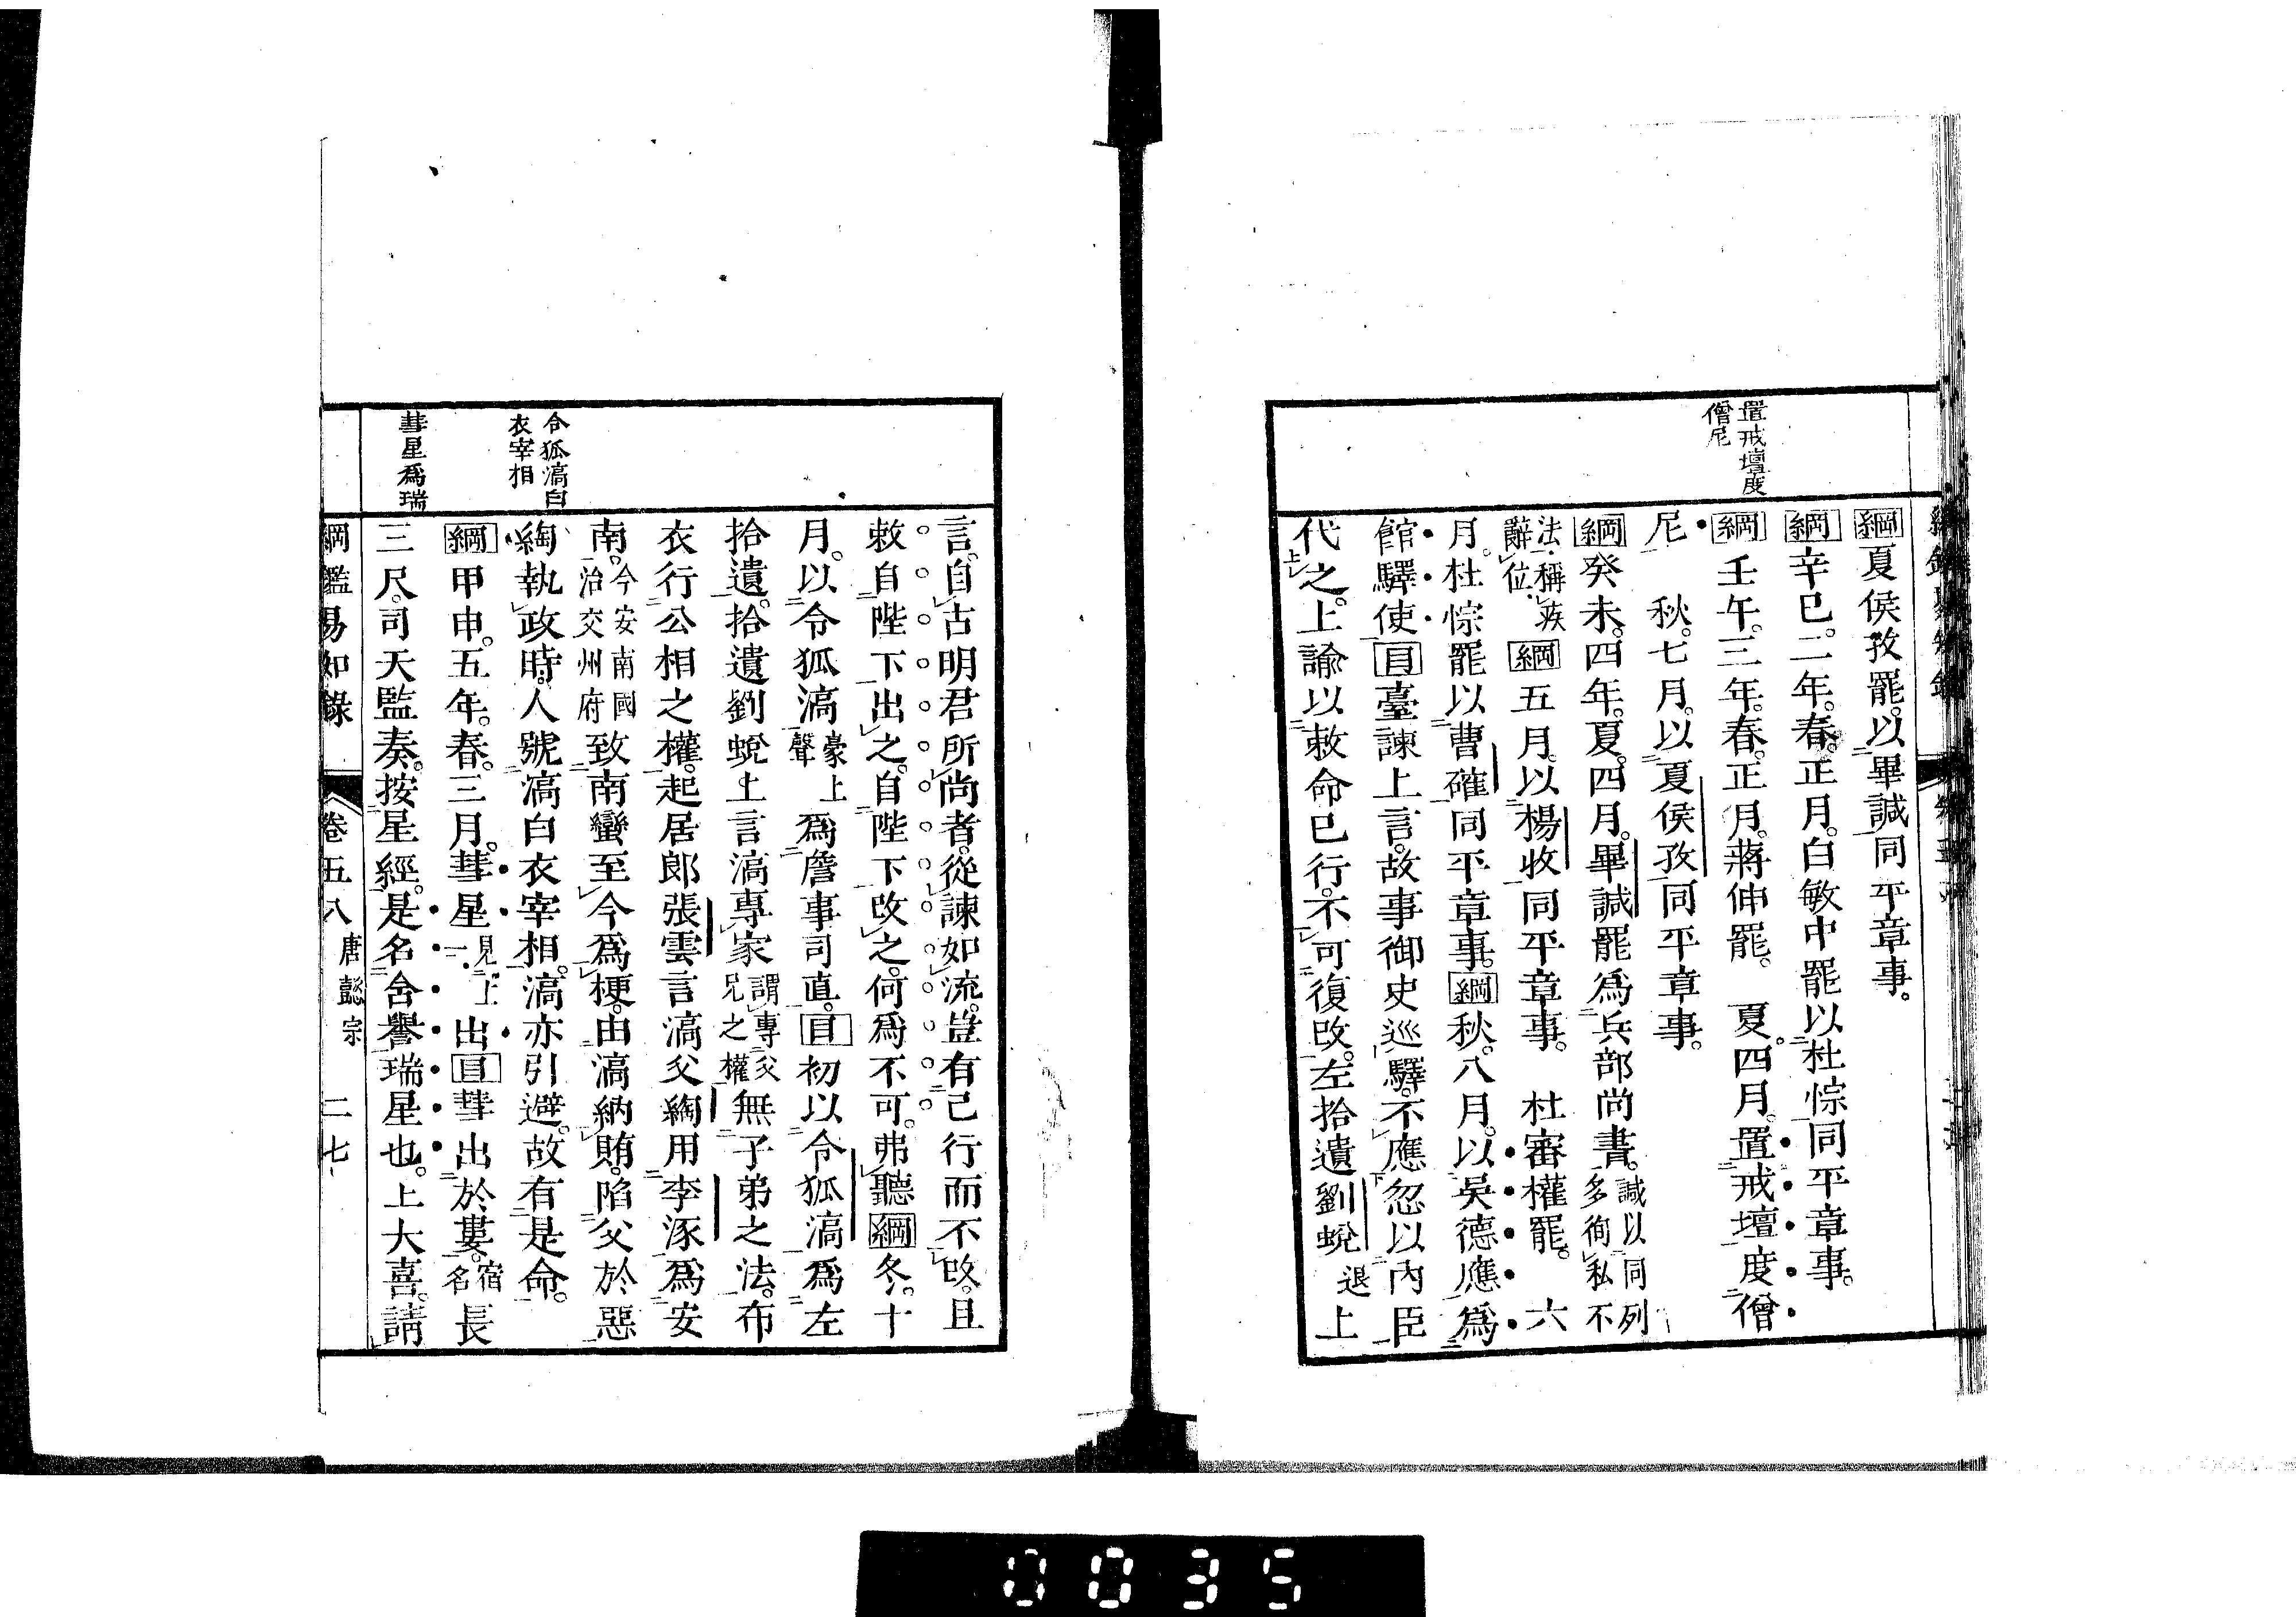 置戒壇度
僧尼
綱夏侯孜罷。以畢諴同平章事。
綱辛巳。二年。春。正月。白敏中罷以杜悰同平章事。
綱壬午。三年。春。正月。蔣伸罷。　夏。四月。置戒壇度僧
尼　秋。七月。以夏侯孜同平章事。
綱癸未。四年。夏。四月。畢諴罷爲兵部尚書。諴以同列多徇私不
法。稱疾辭位。綱五月。以楊收同平章事。　杜審權罷。　六
月。杜悰罷以曹確同平章事。綱秋。八月。以吳德應爲
館驛使目臺諫上言。故事御史巡驛。不應忽以內臣
代之。上諭以敕命已行。不可復改。左拾遺劉蛻退上
言。自古明君所尚者。從諫如流。豈有已行而不改。且
敕自陛下出之。自陛下改之。何爲不可。弗聽綱冬。十
月。以令狐滈豪上聲爲詹事司直。目初以令狐滈爲左
拾遺。拾遺劉蛻上言滈專家謂專父兄之權無子弟之法。布
衣行公相之權。起居郎張雲言滈父綯用李涿爲安
南。今安南國治交州府致南蠻至今爲梗。由滈納賄。陷父於惡
綯執政時。人號滈白衣宰相。滈亦引避。故有是命。
綱甲申。五年。春。三月。彗星見上二出目彗出於婁。宿名長
三尺。司天監奏。按星經。是名含譽瑞星也。上大喜。請
令狐滈白
衣宰相
彗星爲瑞
綱鑑易知錄
卷五八
唐懿宗
二七
0035